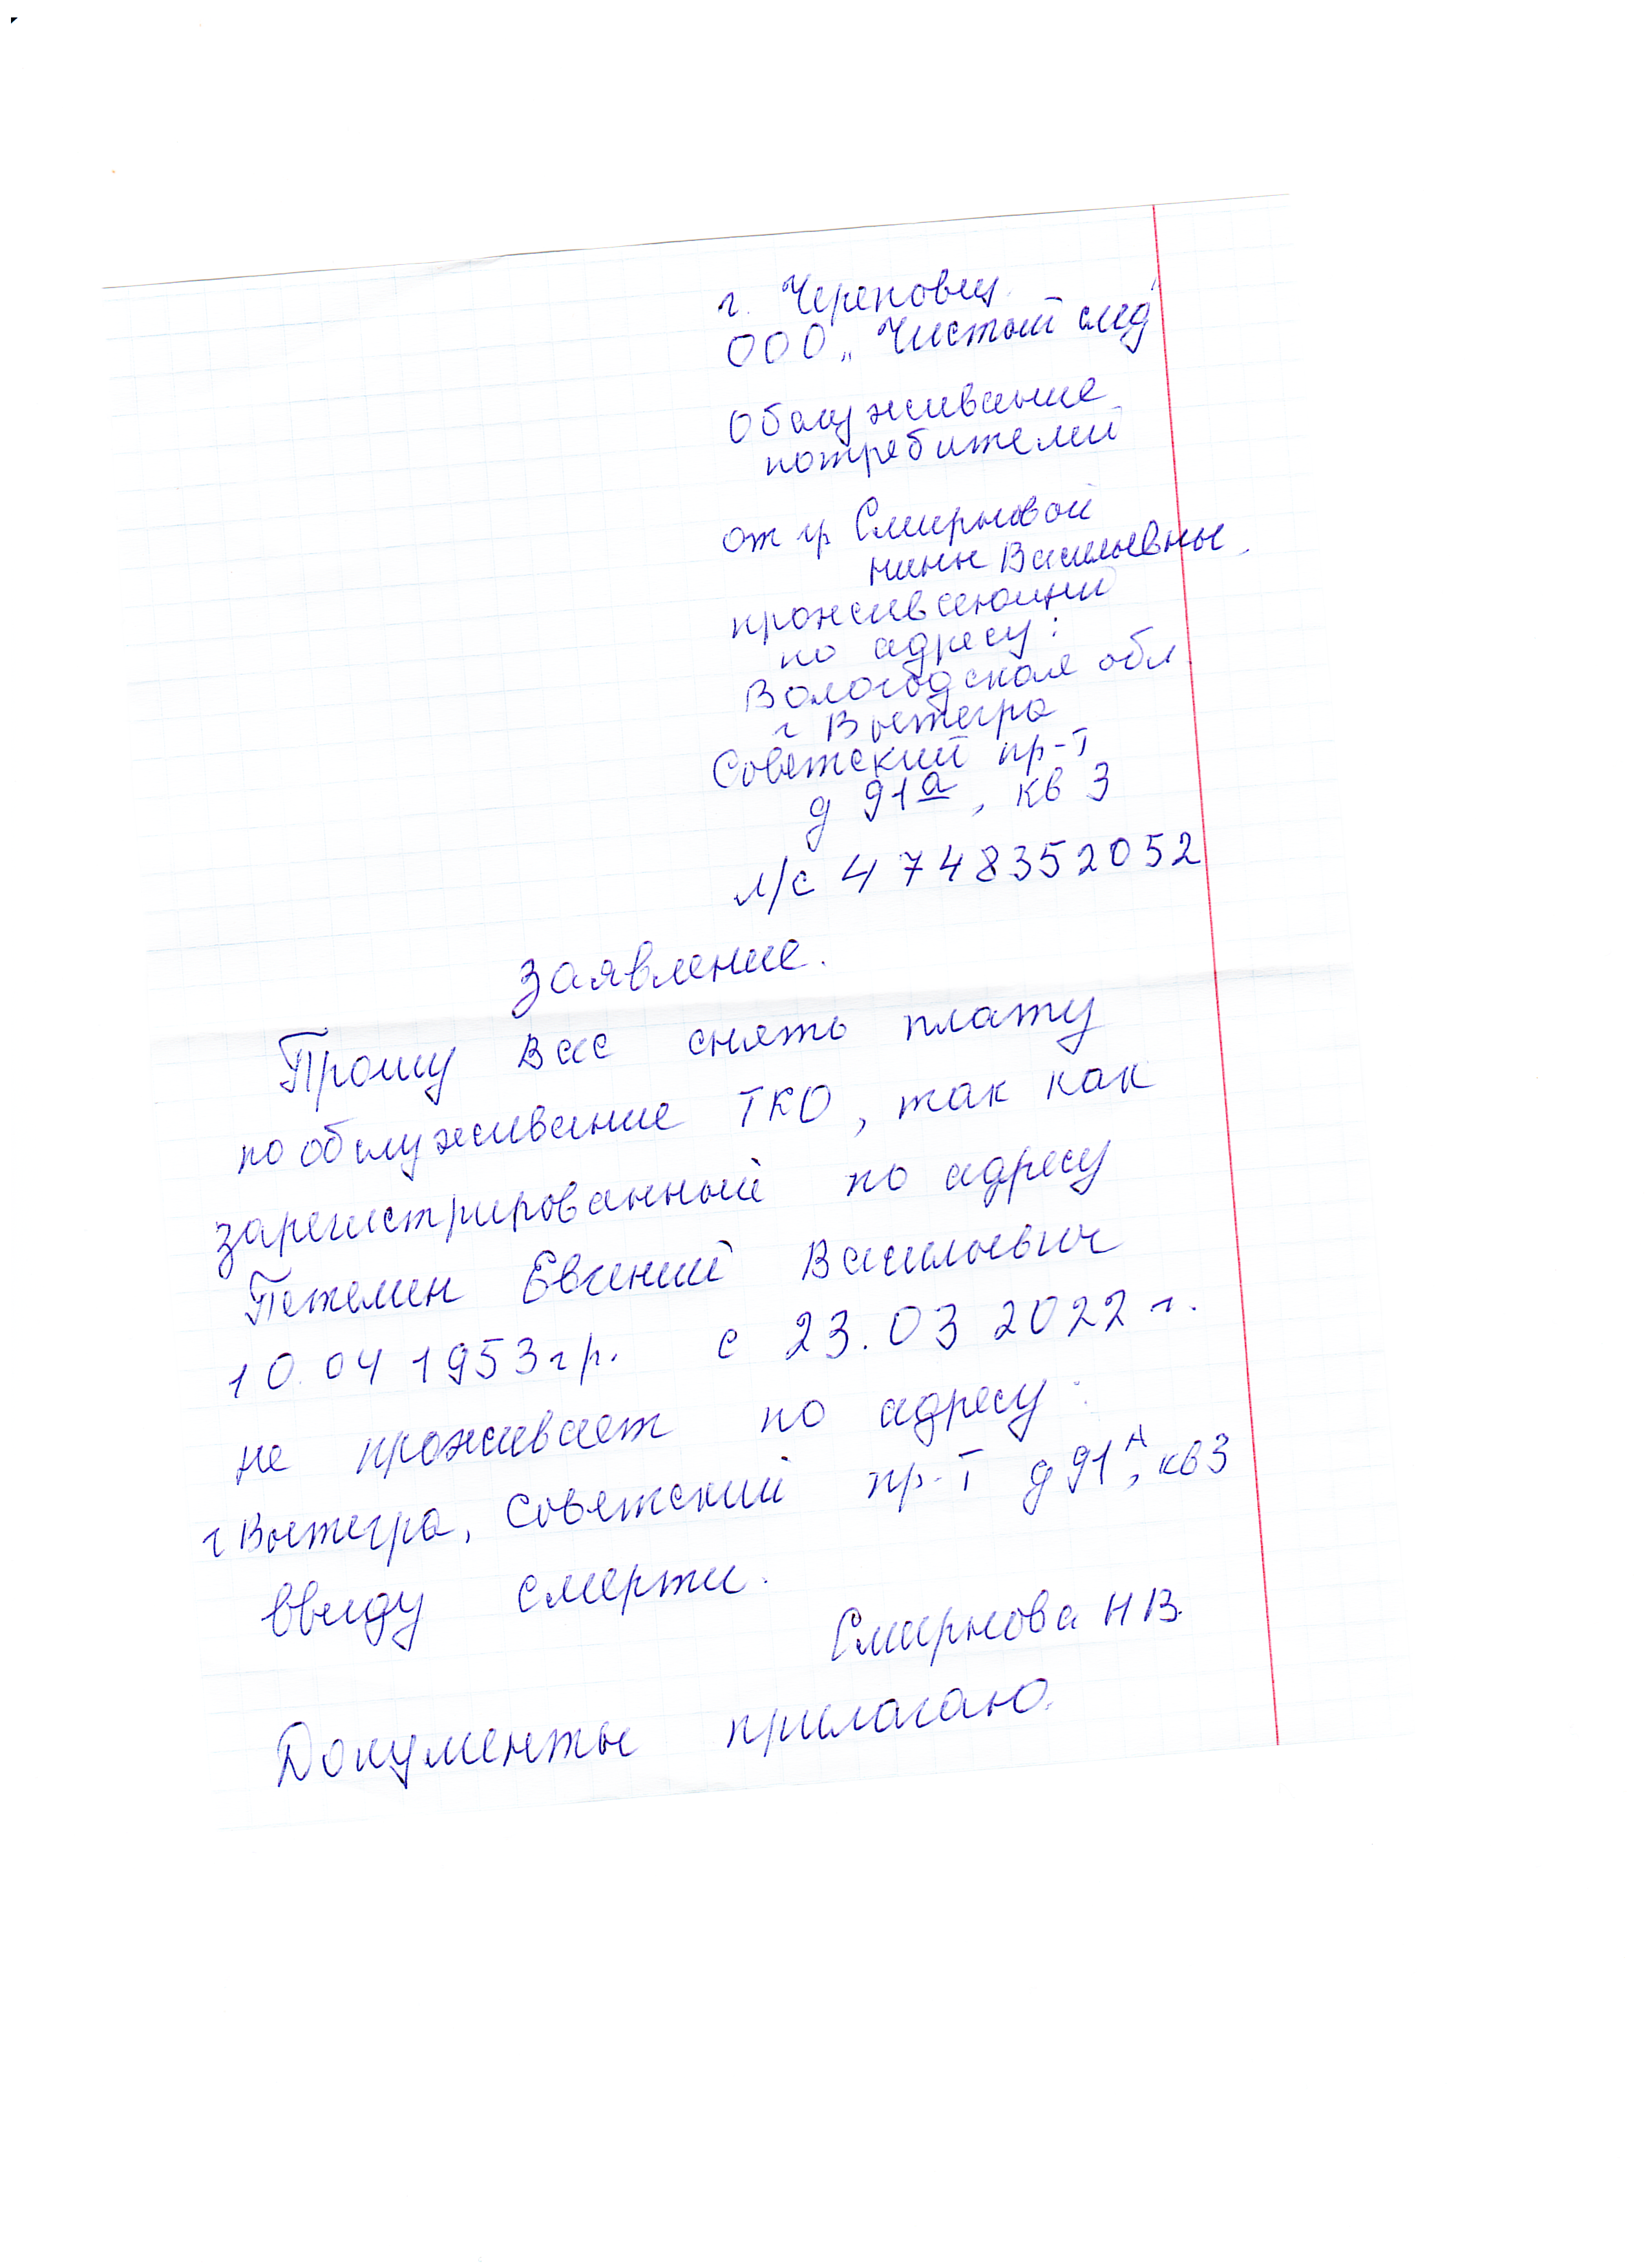 г. Череповец
ООО „Чистый след"
Обслуживание
потребителей
от гр Смирновой
нины Васильевны
проживающий
по адресу:
Вологодская обл
г Вытегра
Советский пр-т
д 91а, кв 3
л/с 4748352052
Заявление.
Прошу Вас снять плату
по обслуживание ТКО, так как
зарегистрированный по адресу
Петелин Евгений Васильевич
10.04 1953гр. с 23.03 2022 г.
не проживает по адресу:
г Вытегра, Советский пр-т д 91А, кв 3
ввиду смерти.
Смирнова Н В.
Документы прилагаю.